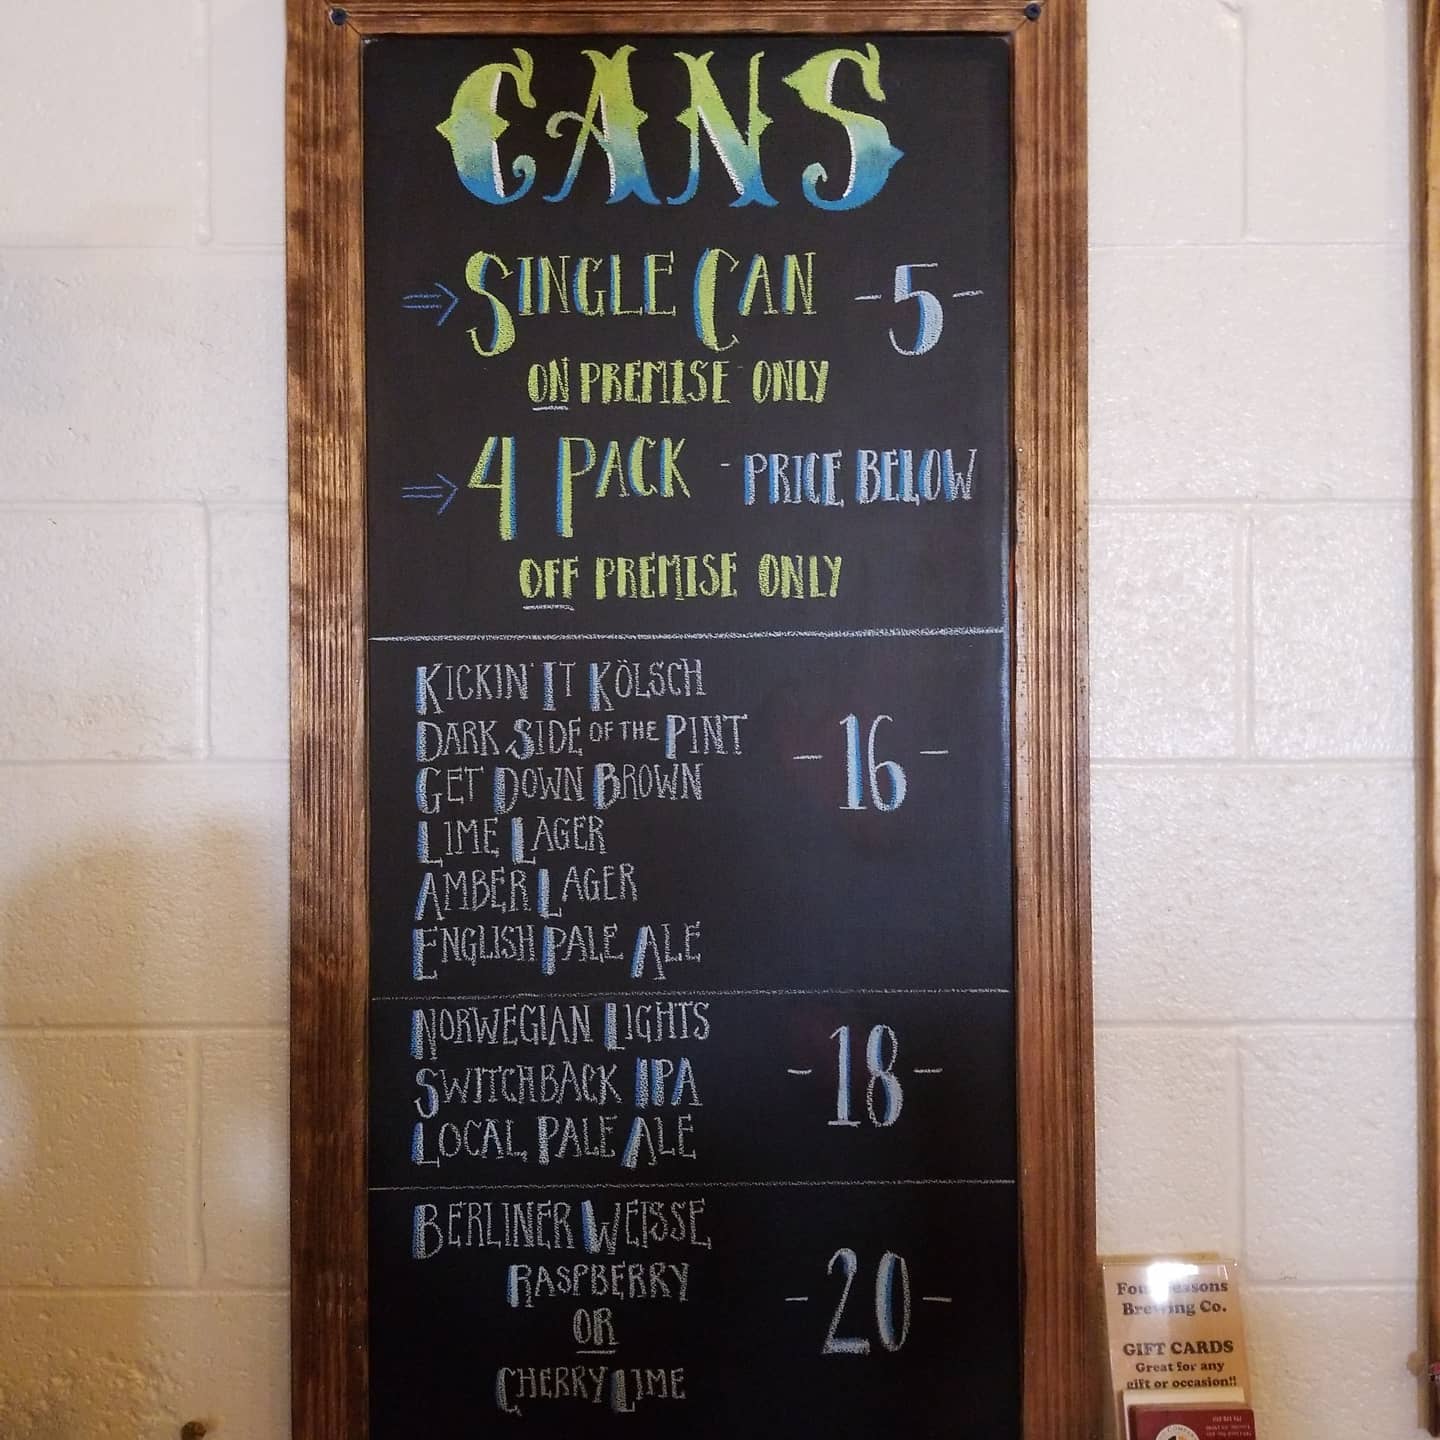 CANS
⇒ SINGLE CAN -5-
ON PREMISE ONLY
⇒ 4 PACK - PRICE BELOW
OFF PREMISE ONLY
KICKIN' IT KÖLSCH
DARK SIDE OF THE PINT -16-
GET DOWN BROWN
LIME LAGER
AMBER LAGER
ENGLISH PALE ALE
NORWEGIAN LIGHTS
SWITCHBACK IPA -18-
LOCAL PALE ALE
BERLINER WEISSE
RASPBERRY -20-
OR
CHERRY LIME
Four Seasons
Brewing Co.
GIFT CARDS
Great for any
gift or occasion!!